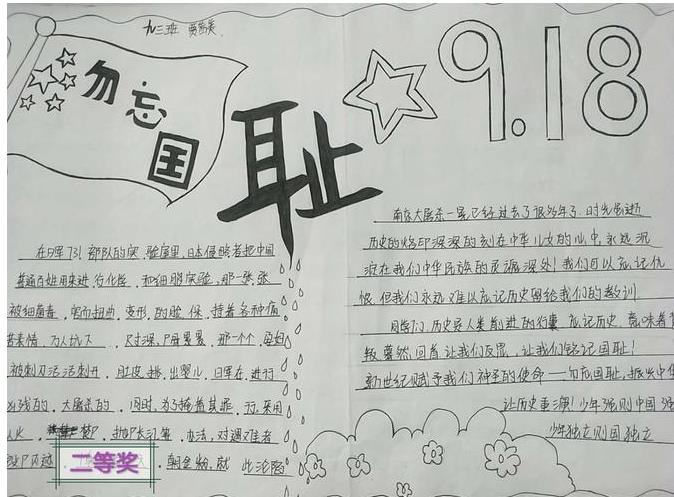 九三班
勿忘国
耻
9.18
在日军731部队的实验屋里,日本侵略者把中国
普通百姓用来进行化学,和细胞实验,那一张张
被细菌毒,害而扭曲,变形,的脸,保,持着各种痛
苦表情,
那一个个,孕妇
被刺刀活活刺开,肚皮,挑,出婴儿,日军在,进行
凶残的,大屠杀的,同时,为了掩盖其罪,行,采用
抛尸长江等,办法,对遇难者
二等奖
南京大屠杀一晃已经过去了很多年了.时光虽逝
历史的烙印深深的刻在中华儿女的心中,永远沉
淀在我们中华民族的灵魂深处!我们可以忘记仇
恨.但我们永远难以忘记历史留给我们的教训
同学们,历史是人类前进的行囊.忘记历史,意味着背
叛.蓦然回首让我们反思,让我们铭记国耻!
新世纪赋予我们神圣的使命——勿忘国耻,振兴中华
让历史重演!少年强则中国强
少年独立则国独立